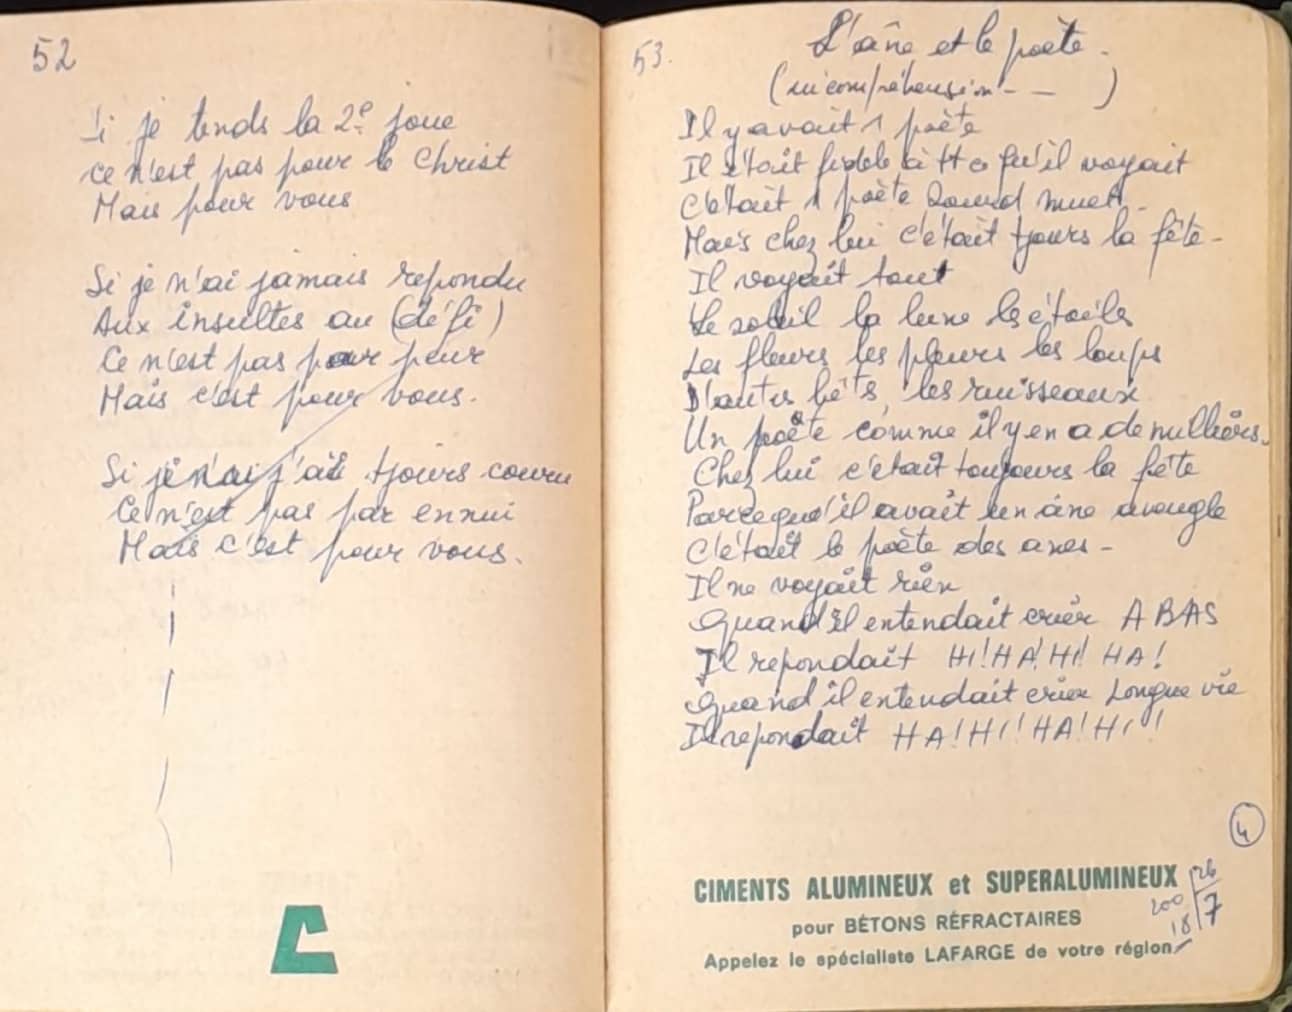 52
Si je tends la 2e joue
Ce n'est pas pour le Christ
Mais pour vous
Si je n'ai jamais repondu
Aux insultes au (défi)
Ce n'est pas par peur
Mais c'est pour vous.
Si je n'ai j'ai tjours couru
Ce n'est pas par ennui
Mais c'est pour vous.
53.
L'âne et le poète.
(incompréhension - - )
Il y avait 1 poète
Il était fidele à tt ce qu'il voyait
C'était 1 poète Sourd muet.
Mais chez lui c'était tjours la fête -
Il voyait tout
Le soleil la lune les étoiles
Les fleurs les pleurs les loups
D'autres bêts les ruisseaux
Un poète comme il y en a de milliers.
Chez lui c'était toujours la fête
Parce qu'il avait un âne aveugle
C'était le poète des anes -
Il ne voyait rien
Quand il entendait crier A BAS
Il repondait HI! HA! HI! HA!
Quand il entendait crier Longue vie
Il repondait HA! HI! HA! HI!!
4
CIMENTS ALUMINEUX et SUPERALUMINEUX
pour BÉTONS RÉFRACTAIRES
Appelez le spécialiste LAFARGE de votre région
26
200
18
7